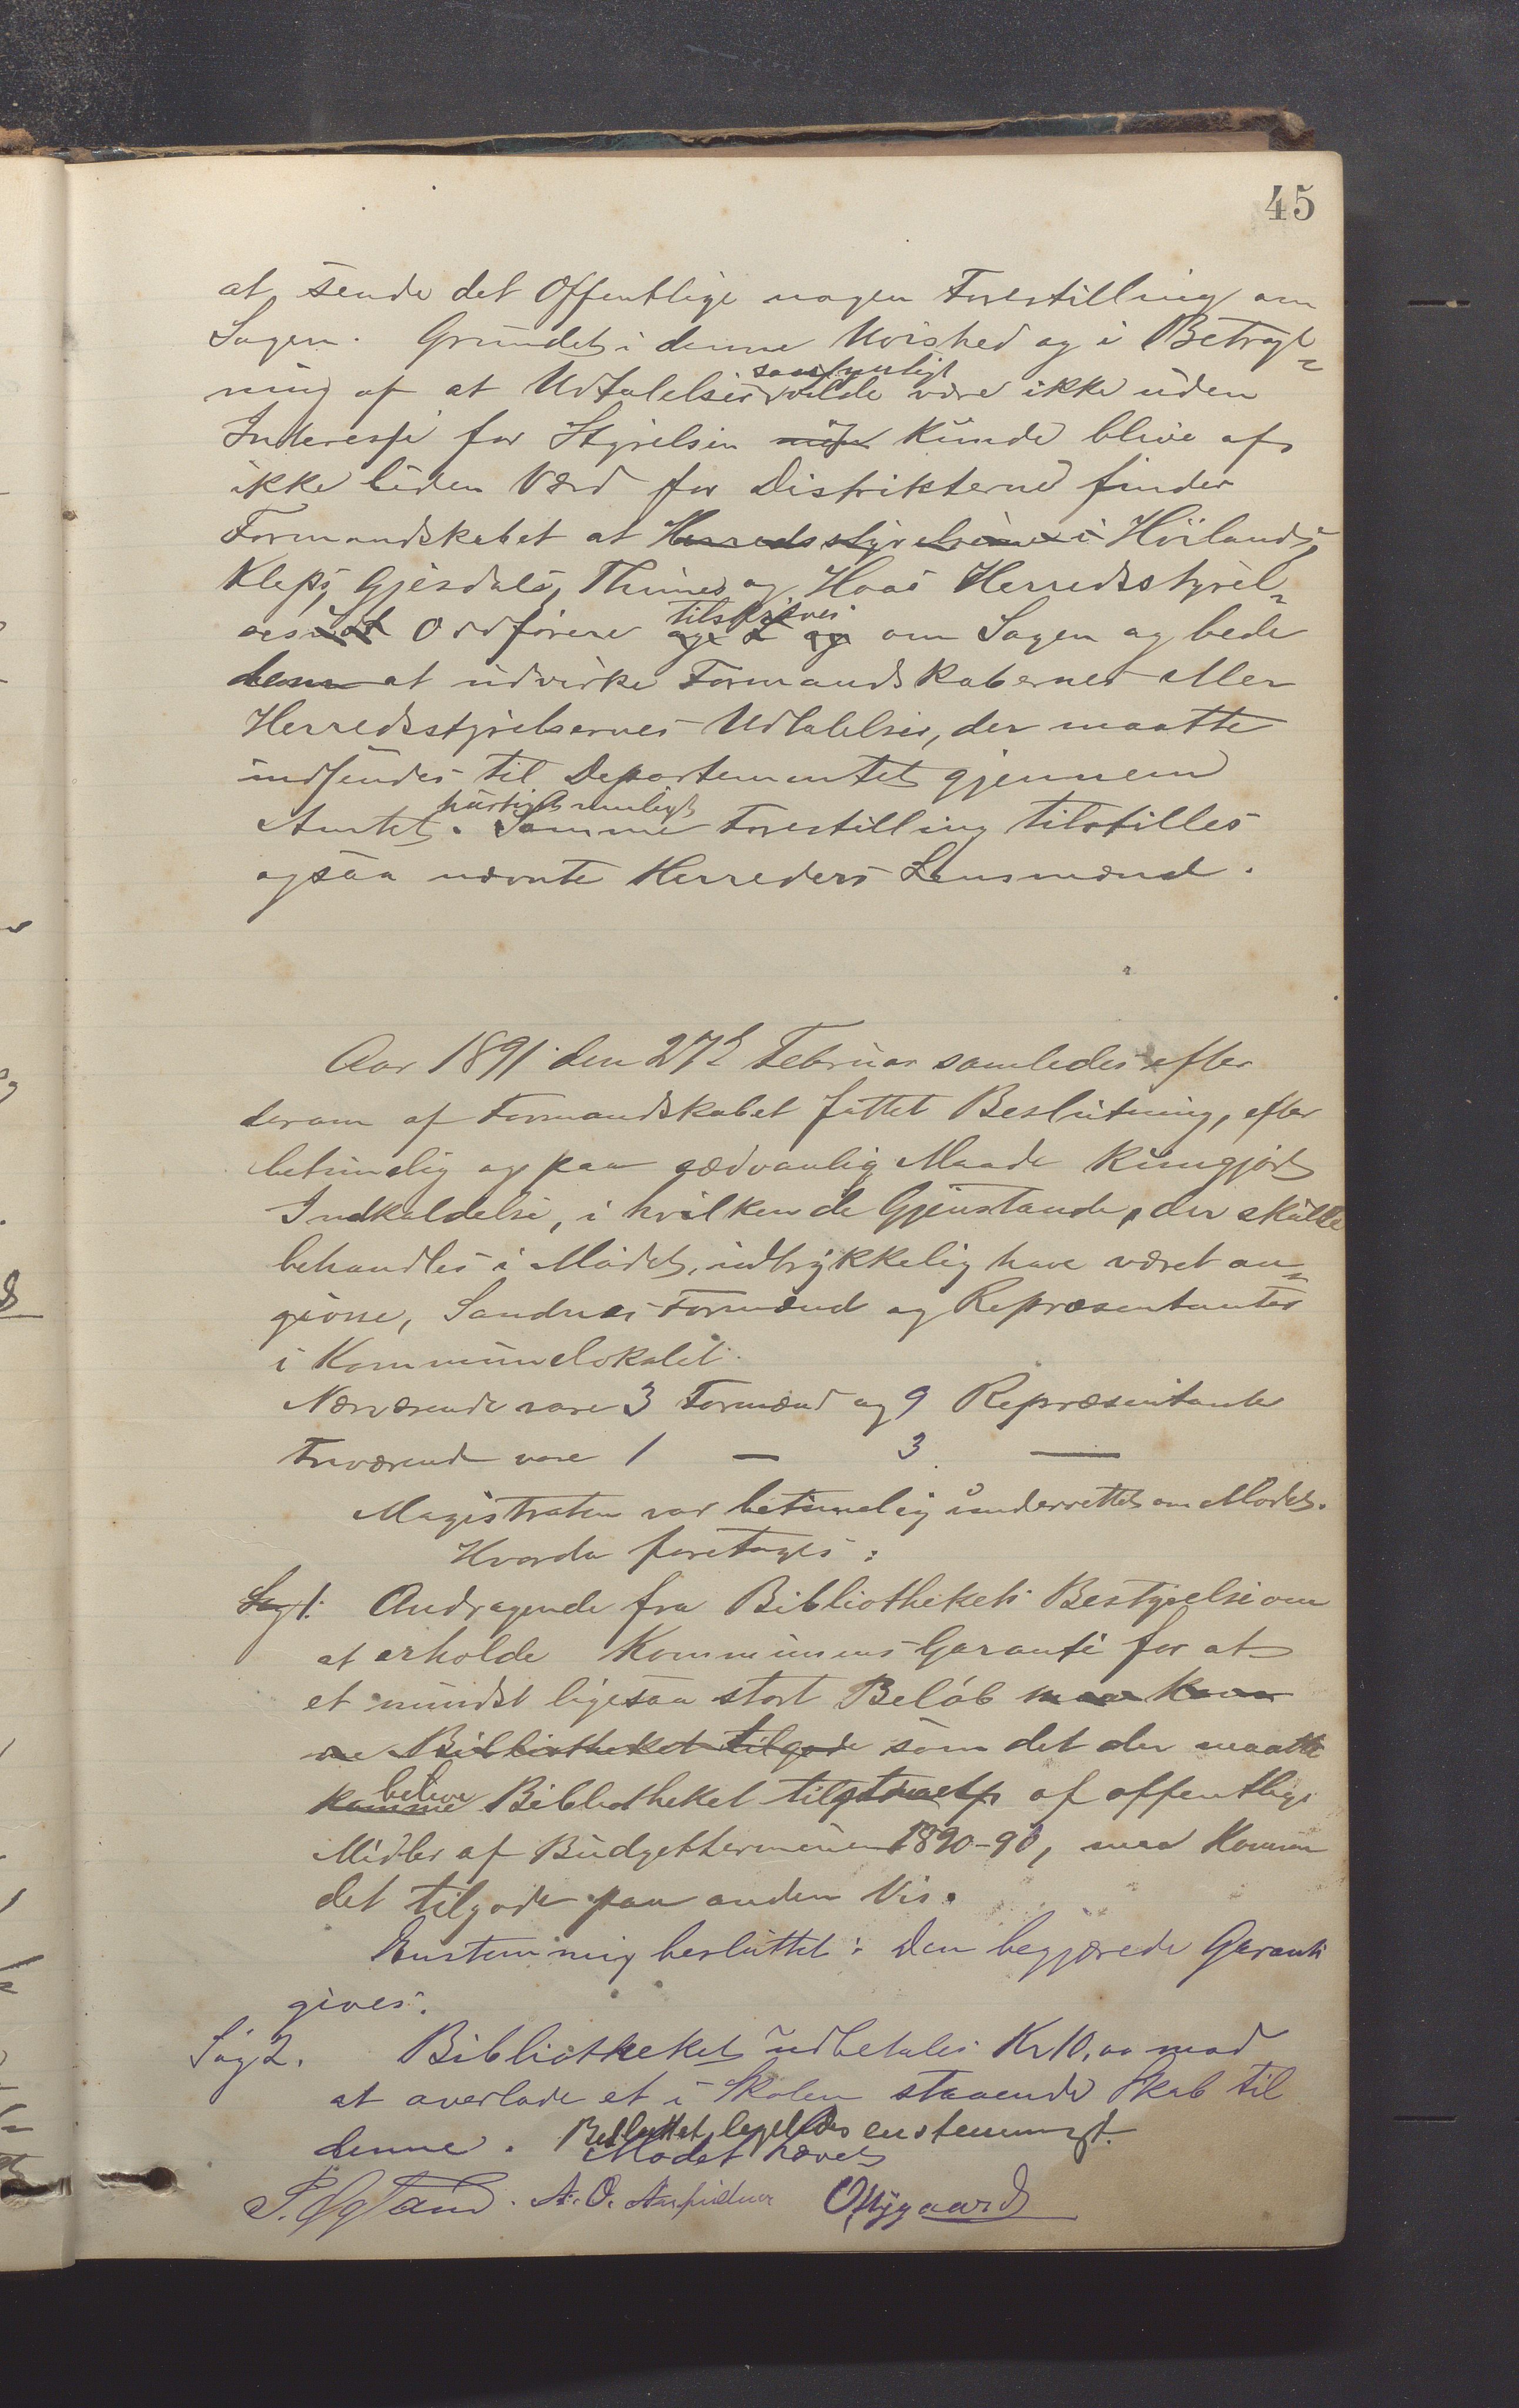 45
at sende det Offentlige nogen Forestilling om
Sagen. Grundet i denne Uvished og i Betragt=
ning af at Udtalelser sandsynligt vilde være ikke uden
Interesse for Styrelsen kunde blive af
ikke liden Værd for Distrikterne finder
Formandskabet at Herredsstyrelserne i Høilands,
Kleps, Gjesdals, Thimes og Haas Herredsstyrel=
ses Ordførere tilskrives om Sagen og bede
dem at udvirke Formandskabernes eller
Herredsstyrelsernes Udtalelser, der maatte
indsendes til Departementet gjennem
Amtet hurtigst muligst. Samme Forestilling tilstilles
ogsaa nævnte Herreders Lensmænd.
Aar 1891 den 27d Februar samledes efter
derom af Formandskabet fattet Beslutning, efter
betimelig og paa sædvanlig Maade kungjort
Indkaldelse, i hvilken de Gjenstande, der skulle
behandles i Mødet, udtrykkelig have været an=
givne, Sandnes Formænd og Repræsentanter
i Kommunelokalet.
Nærværende vare 3 Formænd og 9 Repræsentanter
Fraværende vare 1 — 3 —
Magistraten var betimelig underrettet om Mødet.
Hvorda foretages:
Sag 1. Andragende fra Bibliothekets Bestyrelse om
at erholde Kommunens Garanti for at
et mindst ligesaa stort Beløb maa kom
me Bibliotheket tilgode som det der maatte
komme blive Bibliotheket af offentlige
Midler af Budgetterminen 1890-91, maa komme
det tilgode paa anden Vis.
Enstemmig besluttet: Den begjærede Garanti
gives.
Sag 2. Bibliotheket udbetales Kr 10,00 mod
at overlade et i Skolen staaende Skab til
denne. Besluttet ligeledes enstemmigt.
Mødet hævet